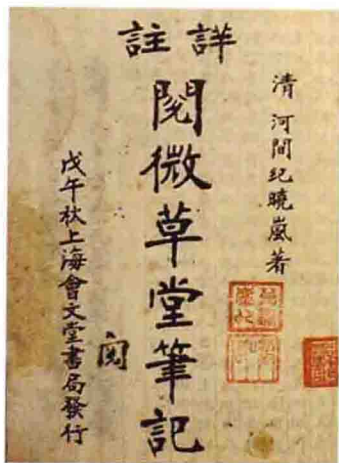 清 河間紀曉嵐著
詳註
閱微草堂筆記
閲
戊午秋上海會文堂書局發行